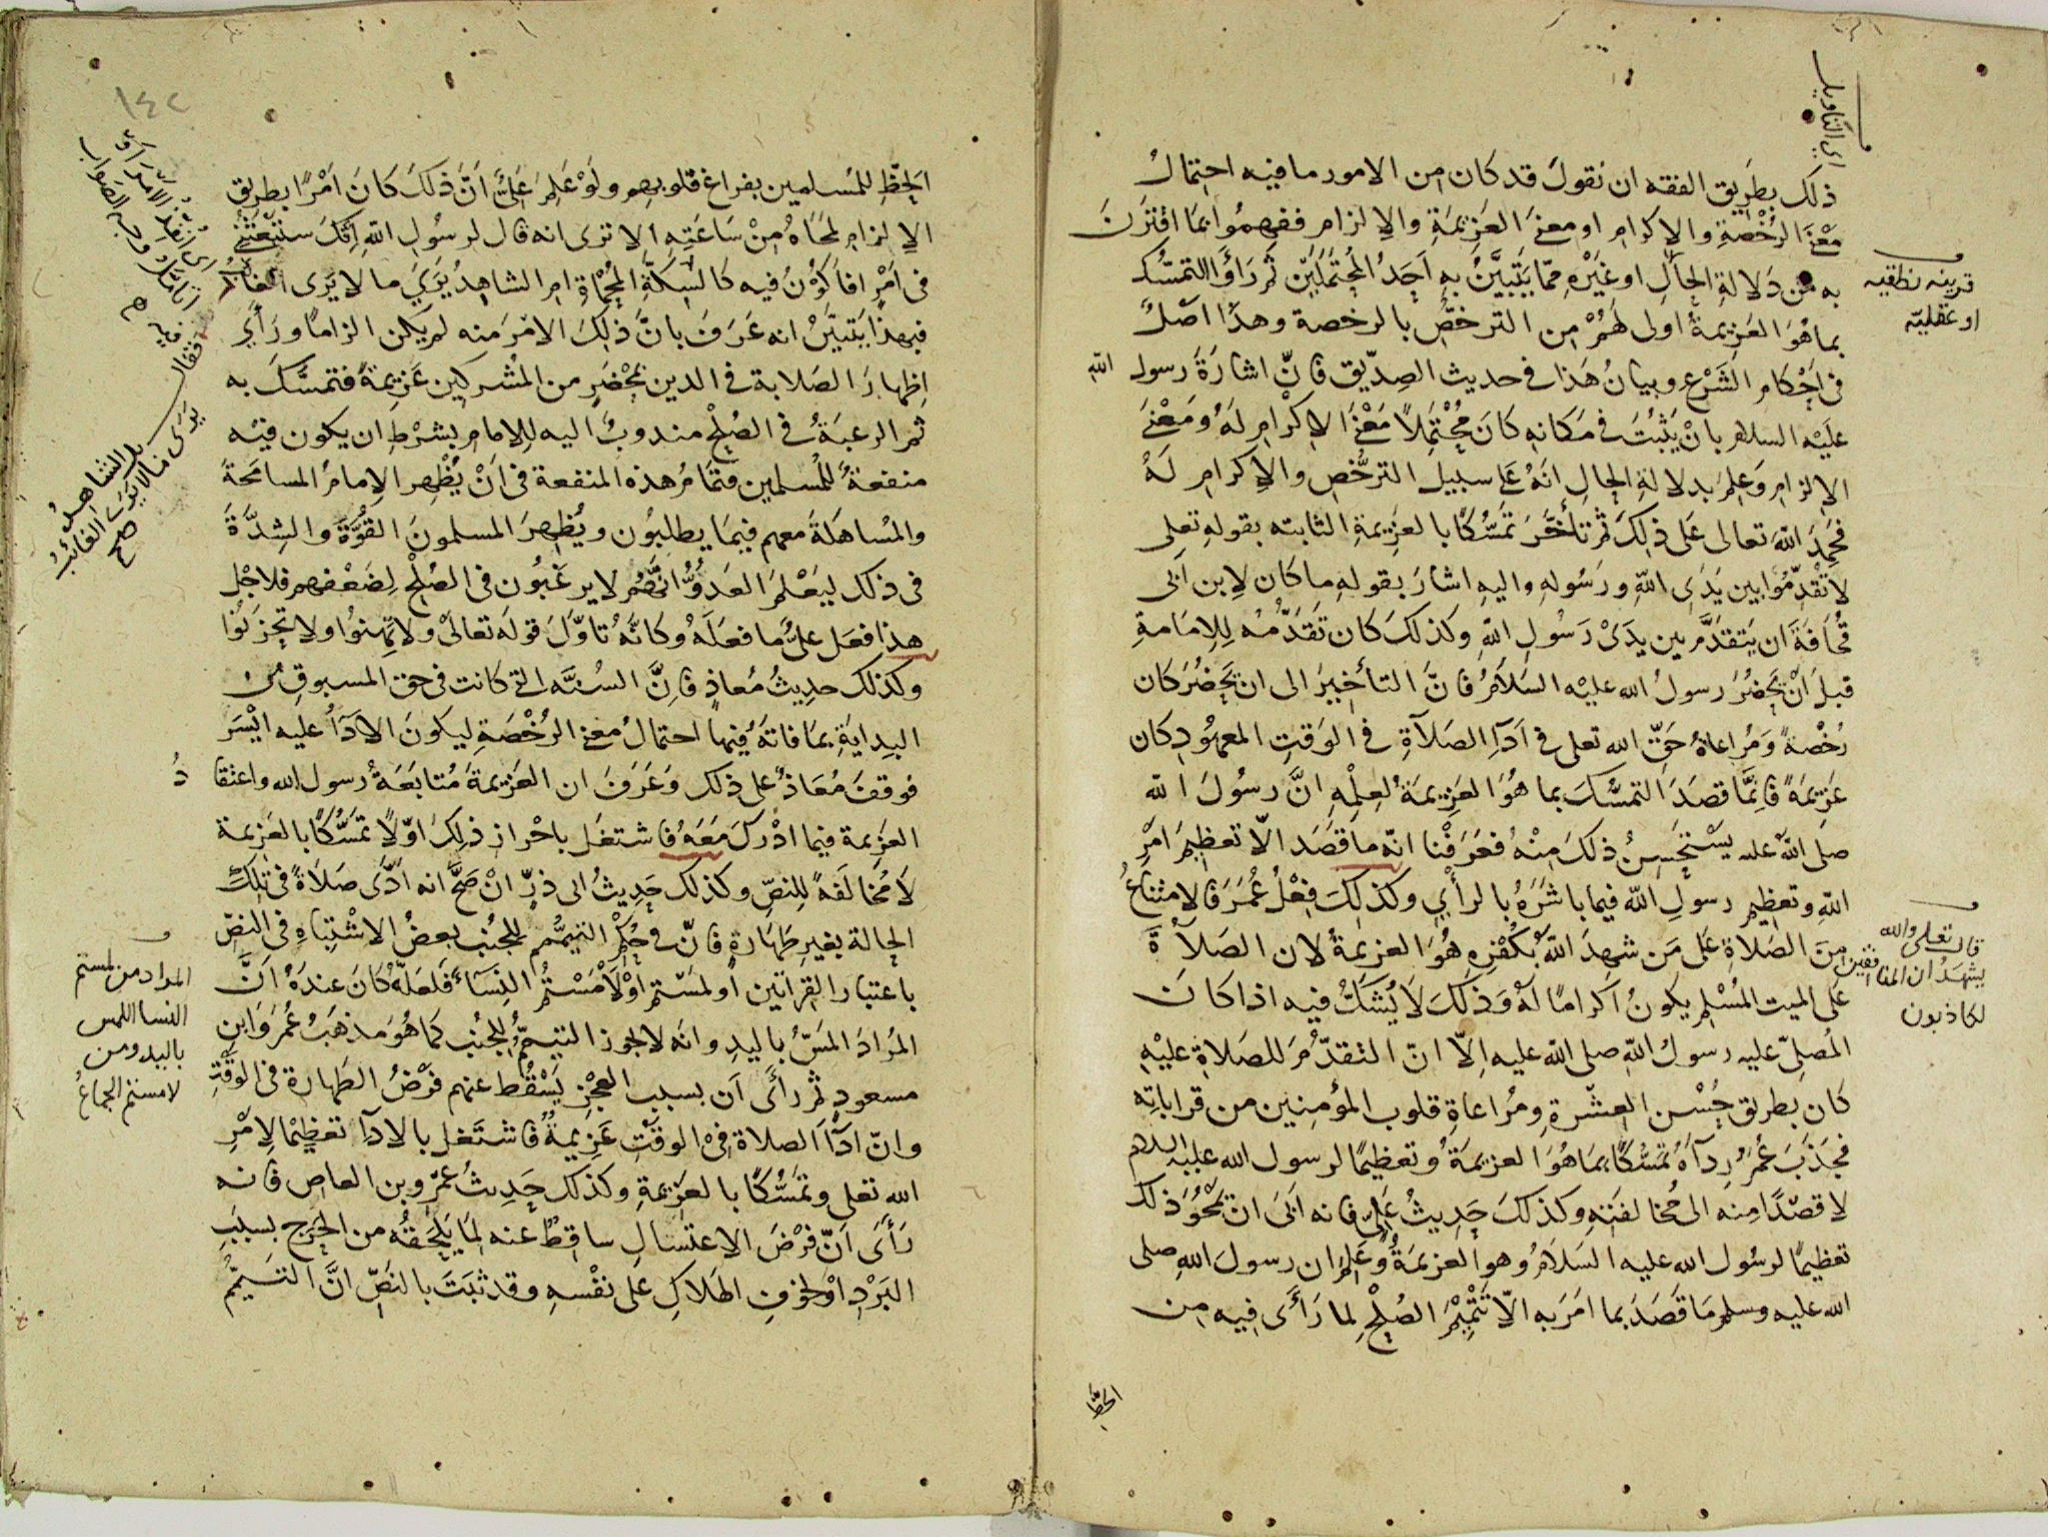 اي التاويل
ذلك بطريق الفقه ان نقول قد كان من الامور ما فيه احتمال
معنى الرخصة والاكرام او معنى العزيمة والالزام ففهموا بما اقترن
به من دلالة الحال او غيره مما يتبين به احد المحتملين ثم راوا التمسك
قرينه نطقيه
او عقليّه
بما هو العزيمة اولى لهم من الترخص بالرخصة وهذا اصل
في احكام الشرع وبيان هذا في حديث الصديق فان اشارة رسول الله
عليه السلام بان يثبت في مكانه كان محتملا معنى الاكرام له ومعنى
الالزام وعلم بدلالة الحال انه على سبيل الترخص والاكرام له
فحمد الله تعالى على ذلك ثم تأخر تمسكا بالعزيمة الثابته بقوله تعلى
لا تقدموا بين يدى الله ورسوله واليه اشار بقوله ما كان لابن ابى
قحافة ان يتقدم بين يدى رسول الله وكذلك كان تقدمه للامامة
قبل ان يحضر رسول الله عليه السلام فان التأخير الى ان يحضر كان
رخصة ومراعاة حق الله تعلى في اداء الصلاة في الوقت المعهود كان
عزيمة فانما قصد التمسك بما هو العزيمة لعلمه ان رسول الله
صلى الله عليه يستحسن ذلك منه فعرفنا انه ما قصد الا تعظيم امر
الله وتعظيم رسول الله فيما باشره بالرأي وكذلك فعل عمر فالامتناع
من الصلاة على من شهد الله بكفره هو العزيمة لان الصلاة
قال تعلى والله
يشهد ان المنافقين
لكاذبون
على الميت المسلم يكون اكراما له وذلك لا يشك فيه اذا كان
المصلى عليه رسول الله صلى الله عليه الا ان التقدم للصلاة عليه
كان بطريق حسن العشرة ومراعاة قلوب المؤمنين من قراباته
فجذب عمر رداه تمسكا بما هو العزيمة وتعظيما لرسول الله عليه السلام
لا قصدا منه الى مخالفته وكذلك حديث على فانه ابى ان يمحو ذلك
تعظيما لرسول الله عليه السلام وهو العزيمة وعلم ان رسول الله صلى
الله عليه وسلم ما قصد بما امر به الا تتميم الصلح لما رأى فيه من
الحظ
١٤٢
الحظ للمسلمين بفراغ قلوبهم ولو علم على ان ذلك كان امرا بطريق
الالزام لمحاه من ساعته الا ترى انه قال لرسول الله انك ستبعثنى
في امر افاكون فيه كالسكة المحماة ام الشاهد يرى ما لا يرى الغائب
فقال
بل الشاهد
يرى ما لا يرى الغائب
صح
فبهذا يتبين انه عرف بان ذلك الامر منه لم يكن الزاما ورأى
اظهار الصلابة في الدين بمحضر من المشركين عزيمة فتمسك به
ثم الرغبة في الصلح مندوب اليه للامام بشرط ان يكون فيه
منفعة للمسلمين وتمام هذه المنفعة في ان يظهر الامام المسامحة
والمساهلة معهم فيما يطلبون ويظهر المسلمون القوة والشدة
في ذلك ليعلم العدو انهم لا يرغبون في الصلح لضعفهم فلاجل
هذا فعل على ما فعله وكانه تاول قوله تعالى ولا تهنوا ولا تحزنوا
وكذلك حديث معاذ فان السنه التي كانت في حق المسبوق من
البداية بما فاته فيها احتمال معنى الرخصة ليكون الاداء عليه ايسر
فوقف معاذ على ذلك وعرف ان العزيمة متابعة رسول الله واعتقاد
العزيمة فيما ادرك معه فاشتغل باحراز ذلك اولا تمسكا بالعزيمة
لا مخالفة للنص وكذلك حديث ابى ذر ان صح انه ادى صلاة في تلك
الحالة بغير طهارة فان في حكم التيمم للجنب بعض الاشتباه في النص
باعتبار القراتين او لمستم او لامستم النساء فلعله كان عنده ان
المراد من لمستم
النسا اللمس
باليد ومن
لامستم الجماع
المراد المس باليد وانه لا يجوز التيمم للجنب كما هو مذهب عمر وابن
مسعود ثم رأى ان بسبب العجز يسقط عنهم فرض الطهارة في الوقت
وان اداء الصلاة في الوقت عزيمة فاشتغل بالادآ تعظيما لامر
الله تعلى وتمسكا بالعزيمة وكذلك حديث عمرو بن العاص فانه
رأى ان فرض الاغتسال ساقط عنه لما يلحقه من الحرج بسبب
البرد او لخوف الهلاك على نفسه وقد ثبت بالنص ان التيمم